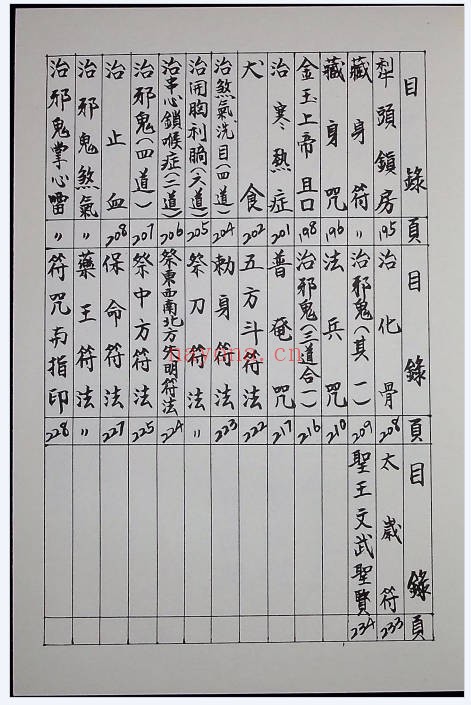 目錄 頁
犁頭鎖房 195
藏身符 〃
藏身咒 196
金玉上帝旦口 198
治寒熱症 201
犬食 202
治煞氣洗目(四道) 204
治開胸利膈(六道) 205
治串心鎖喉症(二道) 206
治邪鬼(四道) 207
治止血 208
治邪鬼煞氣 〃
治邪鬼掌心雷 〃
目錄 頁
治化骨 208
治邪鬼(其一) 209
法兵咒 210
治邪鬼(三道合一) 216
普奄咒 217
五方斗符法 222
勅身符法 223
祭刀符法 〃
祭東西南北方 明符法 224
祭中方符法 225
保命符法 227
藥王符法 〃
符咒南指印 228
目錄 頁
太歲符 233
聖王文武聖賢 234
nayona.cn